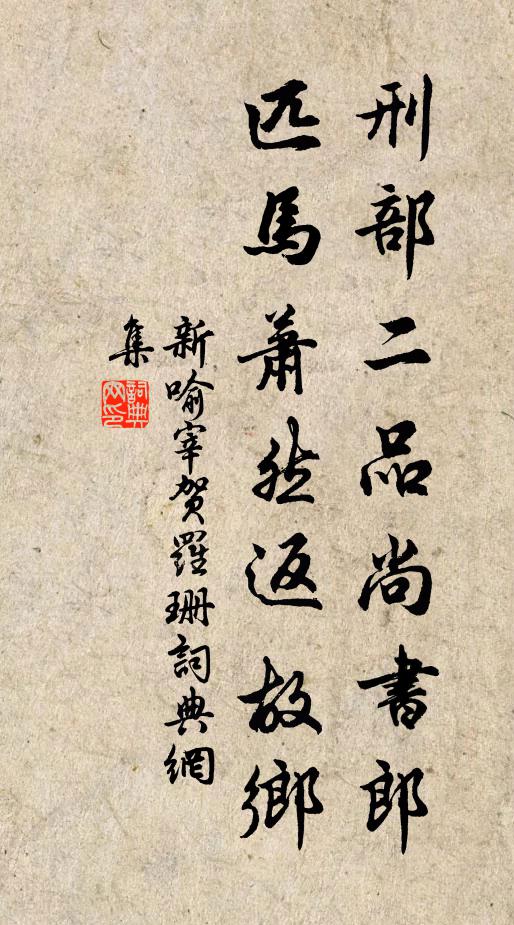 刑部二品尚書郎
匹馬蕭然返故鄉
新喻宰賀羅珊詞典網
集
詞典
网印